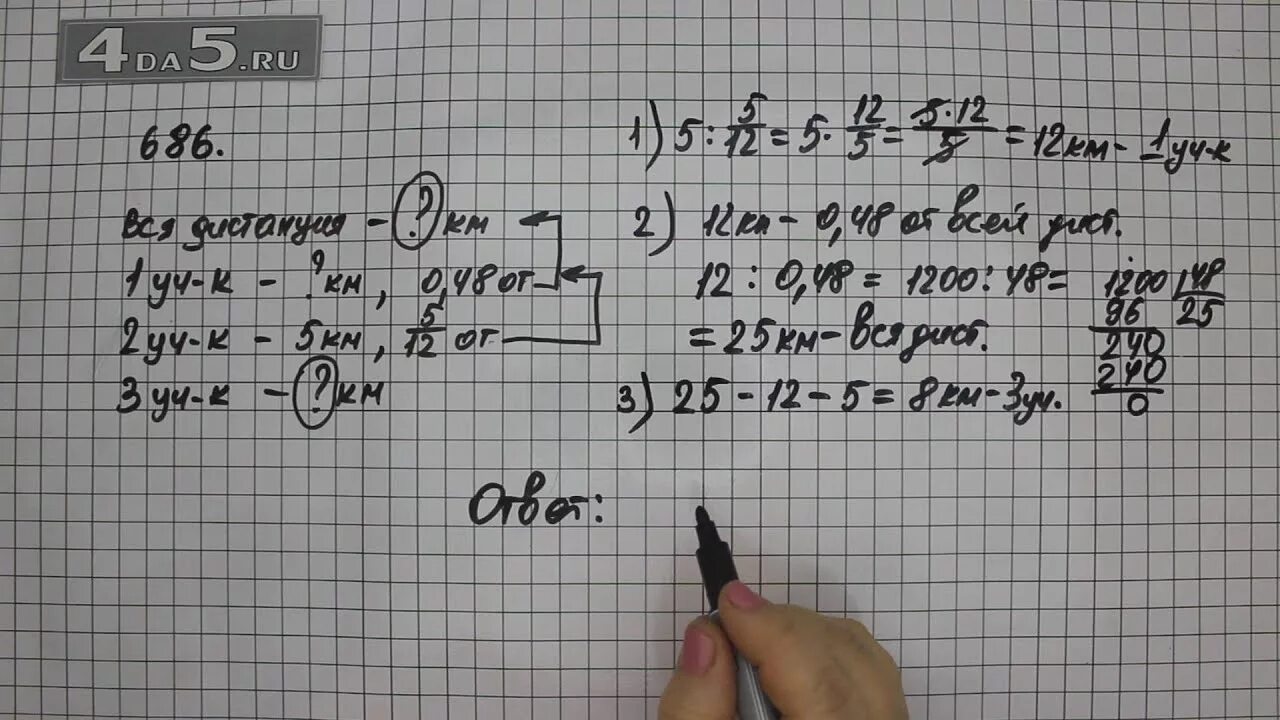 4DA5.RU
686.
Вся дистанция - ? км
1 уч-к - ? км, 0,48 от
2 уч-к - 5 км, 5/12 от
3 уч-к - ? км
1) 5 : 5/12 = 5 · 12/5 = 5·12/5 = 12 км - 1 уч-к
2) 12 км - 0,48 от всей дист.
12 : 0,48 = 1200 : 48 =
= 25 км - вся дист.
1200 | 48
96 25
240
240
0
3) 25 - 12 - 5 = 8 км - 3 уч.
Ответ: